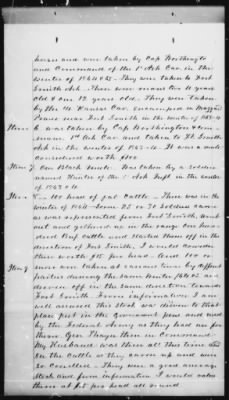 horses and were taken by Cap Worthington
and Command of the 1st Ark Cav in the
winter of 1864 & 65 – They were taken to Fort
Smith Ark. There were mares two 11 years
old & one 12 years old – They were taken
by the 14 Kansas Cav. encamped on
Posses near Fort Smith in the winter of 1863-4
Item 6 was taken by Cap Worthington & Com-
mand 1st Ark Cav and taken to Ft Smith
Ark in the winter of 1863-4. It was a mule
considered worth $100
Item 7 One Black mule. Was taken by a soldier
named Hunter of the 1 Ark Inft in the winter
of 1863 & 4
Item 8 – 100 head of fat Cattle – There was in the
winter of 1864 – Some 25 or 30 soldiers came
as was represented from Fort Smith, went
out and gathered up in the range One hun-
dred Beef cattle and started them off in the
direction of Fort Smith. I would consider
them worth $15 per head – and 100 or
Item 9 more were taken at various times by different
parties during the same winter 1864 & 5 and
driven off in the same direction towards
Fort Smith. From information I am
well assured this stock was driven to that
place put in the government pens and used
by the Federal Army as they had use for
them Gen Thayer then in Command.
My Husband was there all this time and
saw the Cattle as they came up and were
so Corralled – They were a good average
stock and from information I would value
them at $15 per head all round.